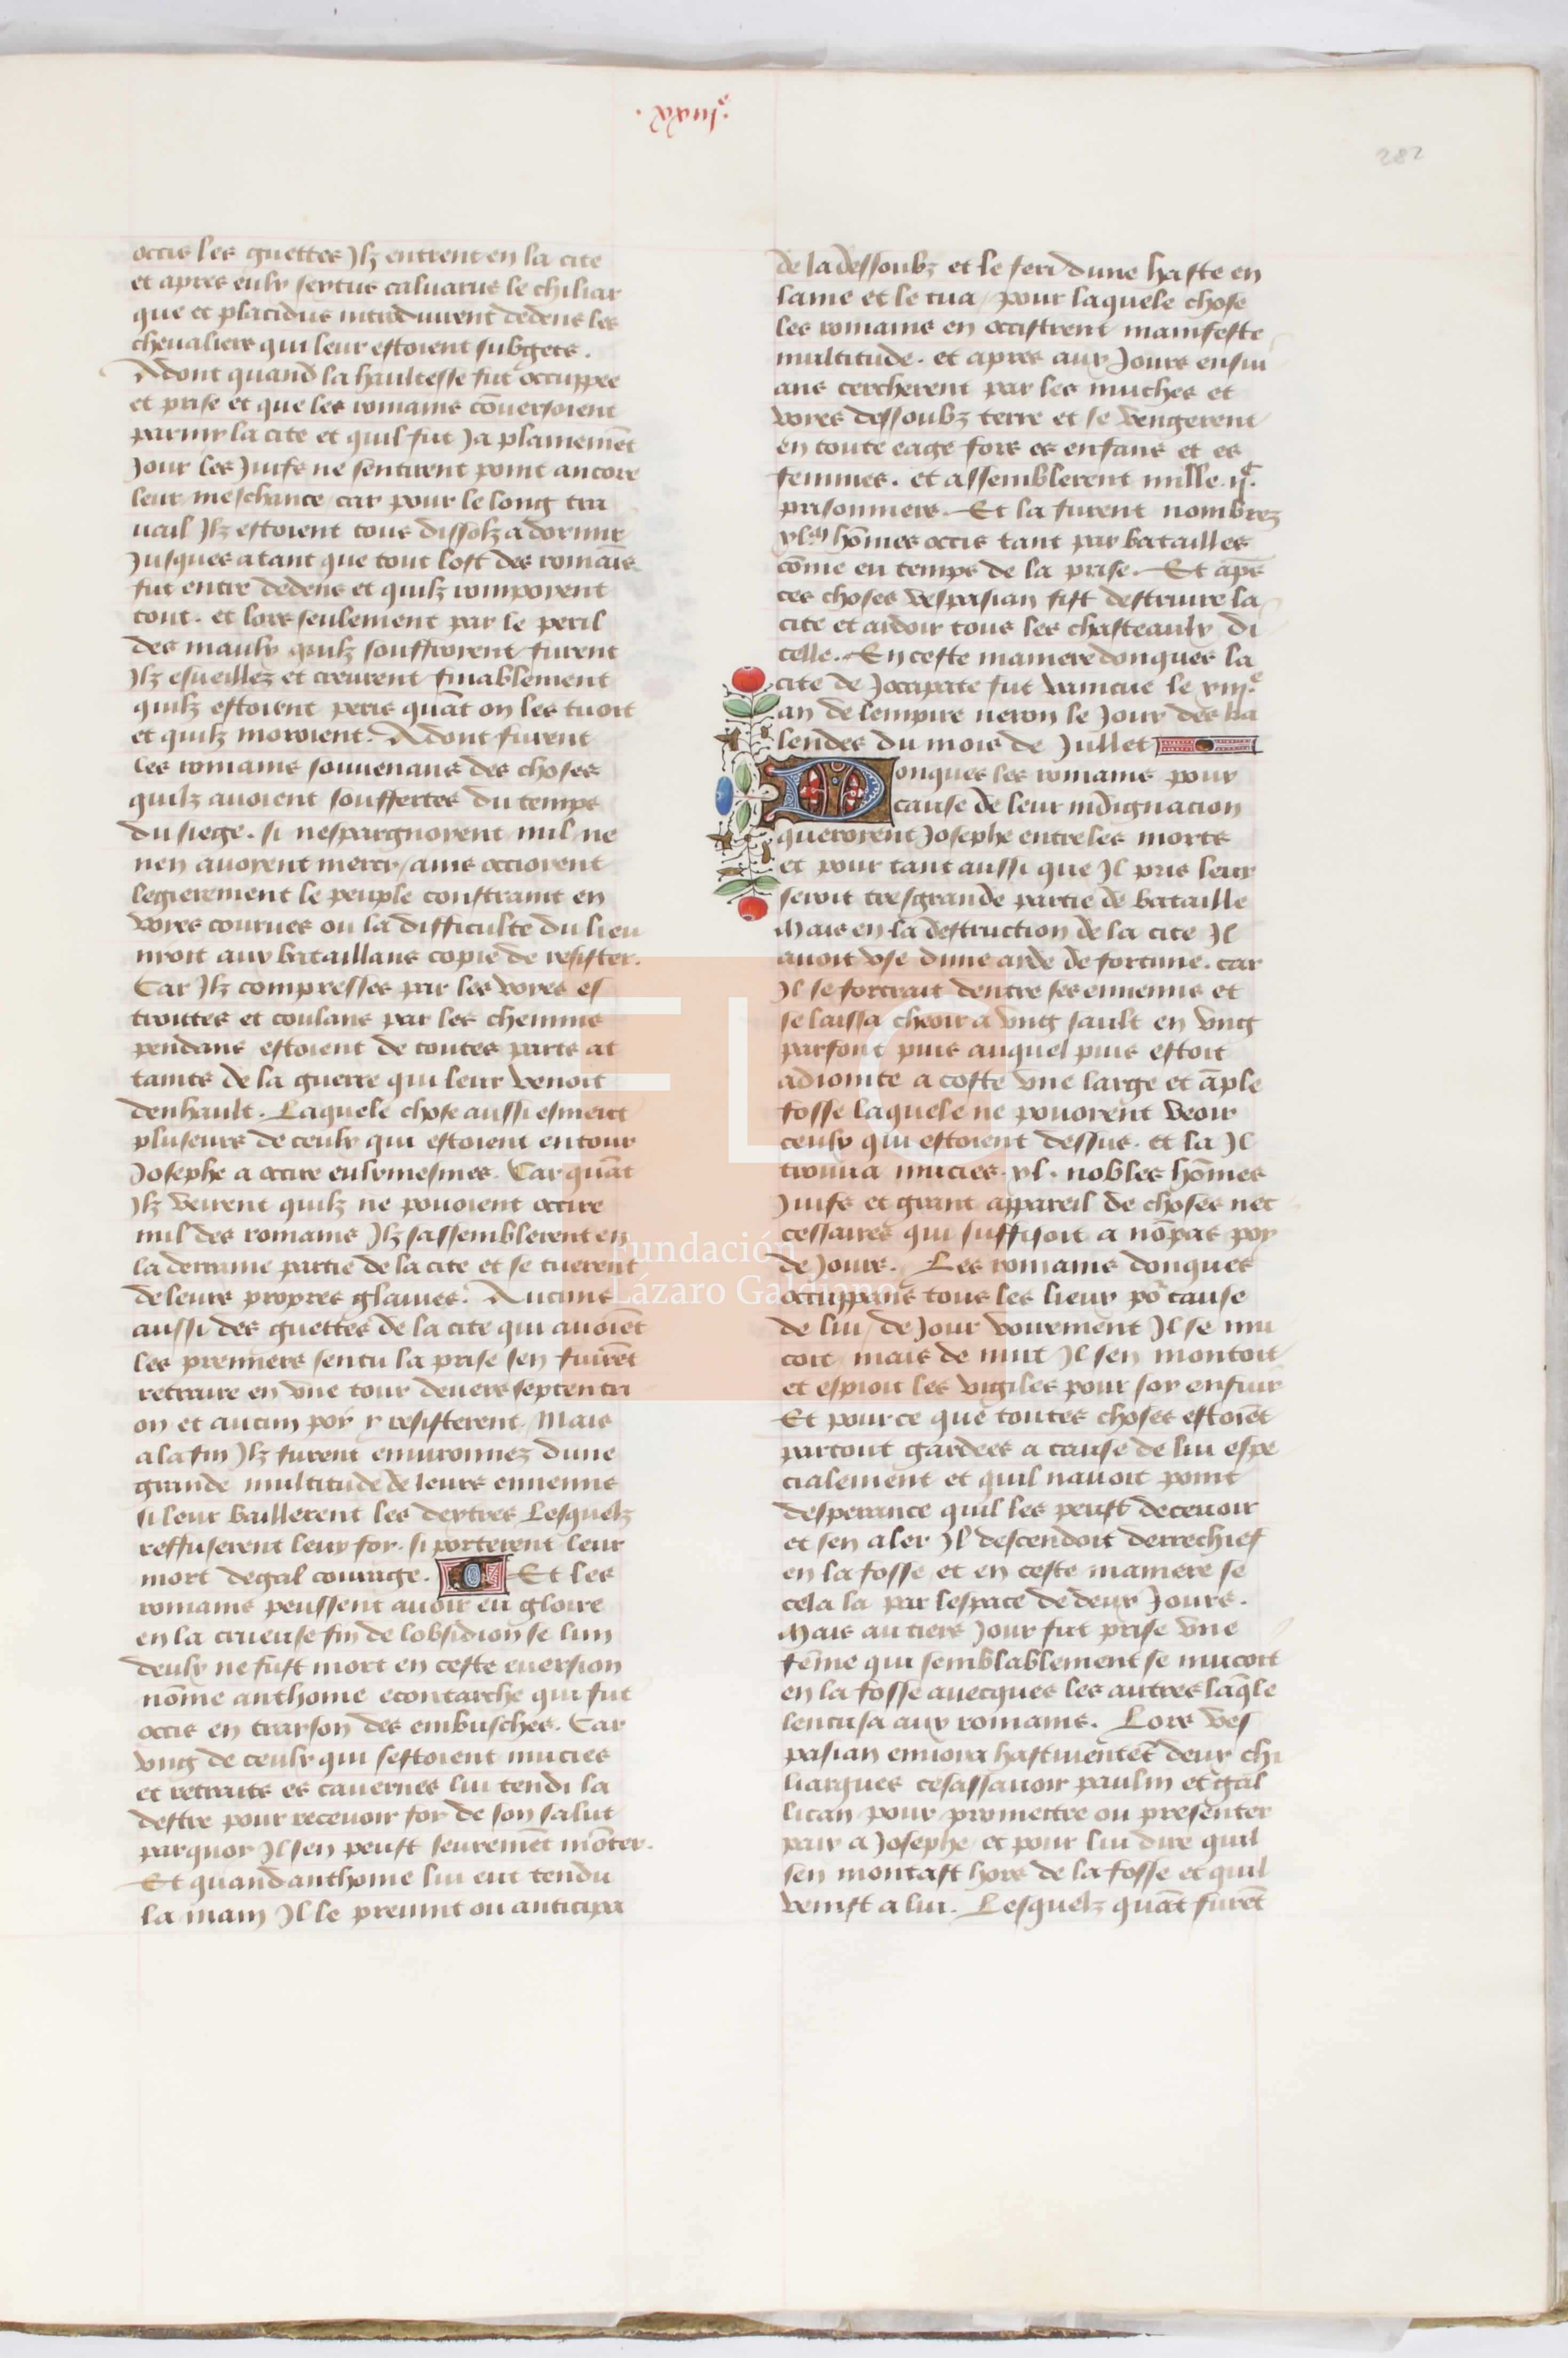 .xxxiij.e
282
occis les guettes Jlz entrent en la cite
et apres eulx sextus caluarus le chiliar
que et placidus introduirent dedens les
cheualiers qui leur estoient subgets.
Adont quand la haultesse fut occuppee
et prise et que les romains cōuersoient
parmy la cite et quil fut Ja plainemēt
Jour les Juifs ne sentirent point ancore
leur meschance car pour le long tra
uail Jlz estoient tous dissolz a dormir
Jusques a tant que tout lost des romaīs
fut entre dedens et quilz rompoyent
tout. et lors seulement par le peril
des maulx quilz souffroient furent
Jlz esueillez et creurent finablement
quilz estoient peris quāt on les tuoit
et quilz moroient. Adont furent
les romains souuenans des choses
quilz auoient souffertes du temps
du siege. si nespargnoyent nul ne
nen auoyent mercy ains occioyent
legierement le peuple constraint en
voyes courues ou la difficulte du lieu
nyoit aux bataillans copie de resister.
Car Jlz compresses par les voyes es
troittes et coulans par les chemins
pendans estoient de toutes pars at
tains de la guerre qui leur venoit
denhault. Laquele chose aussi esmeut
pluseurs de ceulx qui estoient entour
Josephe a occire eulxmesmes. Car quāt
Jlz veirent quilz ne pouoient occire
nul des romains Jlz sassemblerent en
la derraine partie de la cite et se tuerent
de leurs propres glaiues. Aucuns
aussi des guettes de la cite qui auoiēt
les premiers sentu la prise sen fuirēt
retraire en vne tour deuers septentri
on et aucun poy y resisterent. Mais
a la fin Jlz furent enuironnez dune
grande multitude de leurs ennemis
si leur baillerent les dextres Lesquelz
reffuserent leur foy. si porterent leur
mort degal courage. Et les
romains peussent auoir eu gloire
en la crueuse fin de lobsidion se lun
deulx ne fust mort en ceste euersion
nōme anthoine econtarche qui fut
occis en trayson des embusches. Car
vng de ceulx qui sestoient mucies
et retraits es cauernes lui tendi la
destre pour receuoir foy de son salut
parquoy Jl sen peust seuremēt mōter.
Et quand anthoine lui eut tendu
la main Jl le preuint ou anticipa
de la dessoubz et le feri dune haste en
lame et le tua pour laquele chose
les romains en occistrent manifeste
multitude. et apres aux Jours ensui
ans cercherent par les muches et
voyes dessoubz terre et se vengerent
en toute eage fors es enfans et es
femmes. et assemblerent mille .ijc.
prisonniers. Et la furent nombrez
xlm hōmes occis tant par batailles
cōme en temps de la prise. Et aps
ces choses vespasian fist destruire la
cite et ardoir tous les chasteaulx di
celle. En ceste maniere donques la
cite de Joccapate fut vaincue le xiij.e
an de lempire neron le Jour des ka
lendes du mois de Jullet
Donques les romains pour
cause de leur indignacion
queroyent Josephe entre les morts
et pour tant aussi que Jl pris leur
seroit tresgrande partie de bataille
Mais en la destruction de la cite Jl
auoit vse dune ayde de fortune. car
Jl se fortrait dentre ses ennemis et
se laissa cheoir a vng sault en vng
parfont puis auquel puis estoit
adiointe a coste vne large et āple
fosse laquele ne pouoyent veoir
ceulx qui estoient dessus. et la Jl
trouua mucies. xl. nobles hōmes
Juifs et grant appareil de choses nec
cessaires qui suffisoit a nōpas poy
de Jours. Les romains donques
occuppans tous les lieux po cause
de lui de Jour voirement Jl se mu
coit mais de nuit Jl sen montoit
et espioit les vigiles pour soy enfuir
Et pource que toutes choses estoiēt
partout gardees a cause de lui espe
cialement et quil nauoit point
desperance quil les peust deceuoir
et sen aler Jl descendoit derrechief
en la fosse et en ceste maniere se
cela la par lespace de deux Jours.
Mais au tiers Jour fut prise vne
fēme qui semblablement se mucoit
en la fosse auecques les autres laq̄le
lencusa aux romains. Lors ves
pasian enuoya hastiuemēt deux chi
liarques cesassauoir paulin et gal
lican pour promettre ou presenter
paix a Josephe et pour lui dire quil
sen montast hors de la fosse et quil
venist a lui. Lesquelz quāt furēt
Fundación
Lázaro Galdiano
FLG